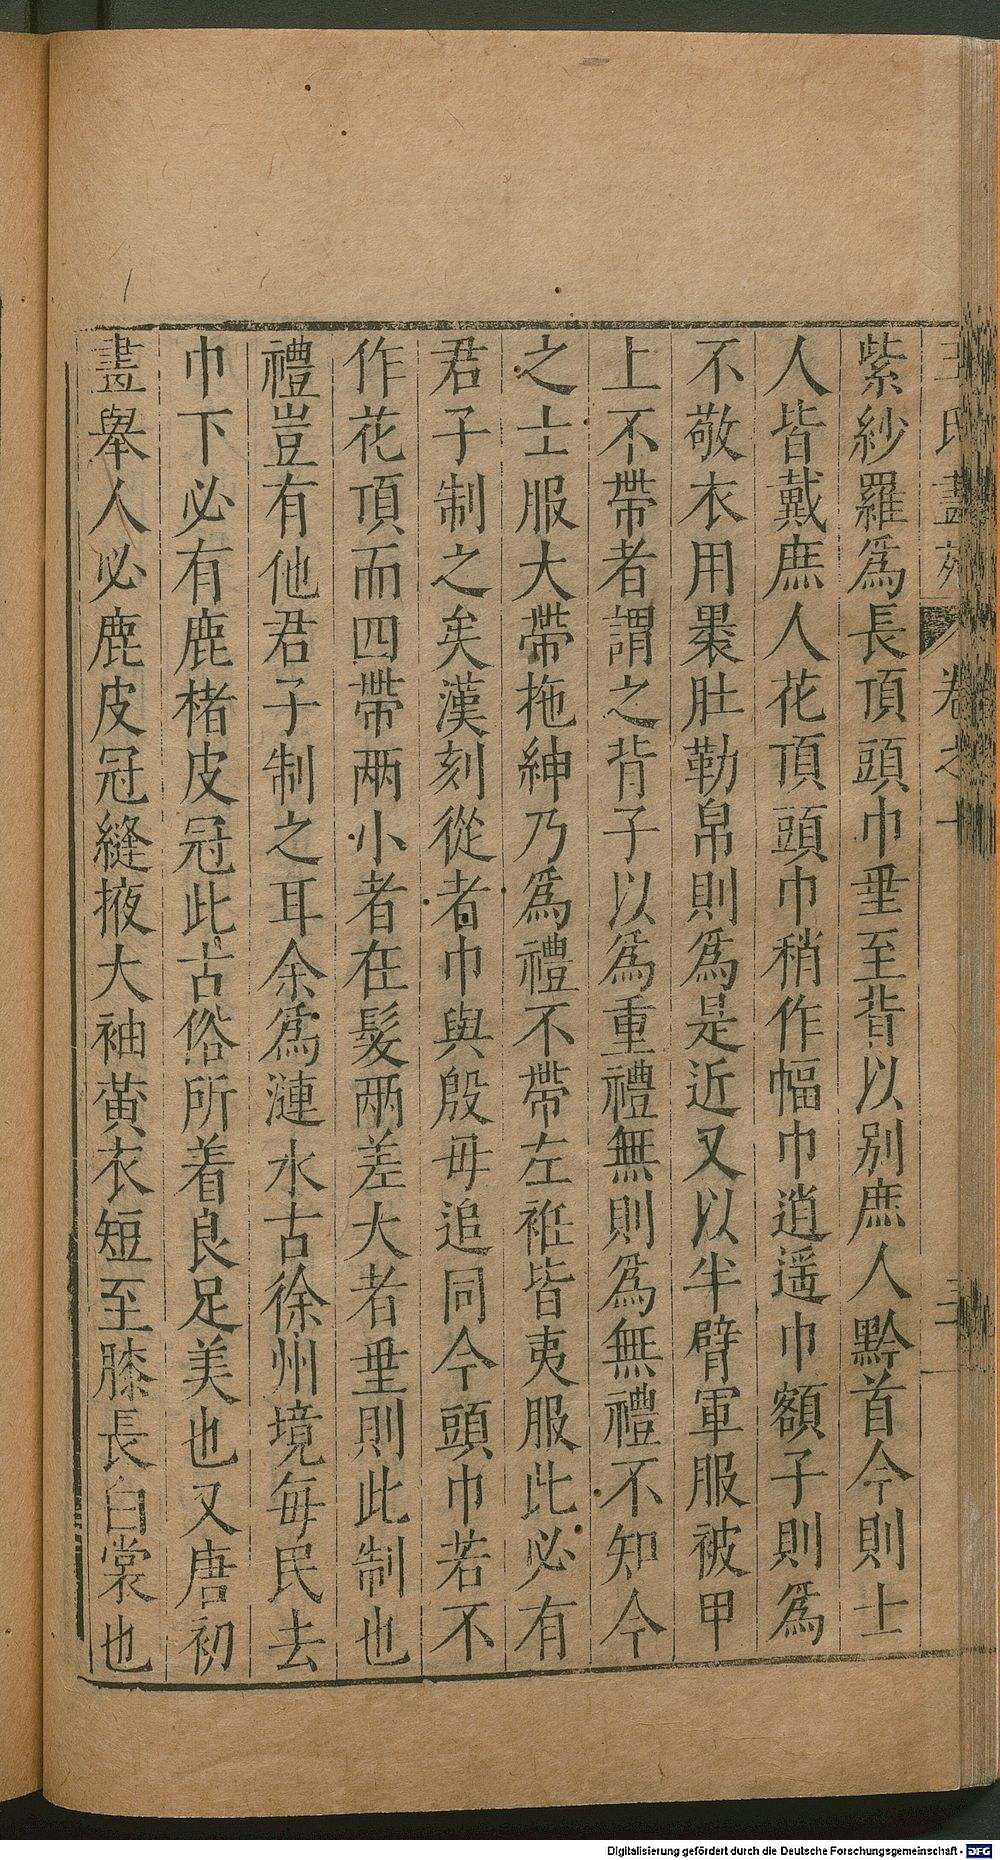 王氏畫苑 卷之十 三
紫紗羅爲長頂頭巾垂至背以别庶人黔首今則士
人皆戴庶人花頂頭巾稍作幅巾逍遥巾額子則爲
不敬衣用裹肚勒帛則爲是近又以半臂軍服被甲
上不帶者謂之背子以爲重禮無則爲無禮不知今
之士服大帶拖紳乃爲禮不帶左袵皆夷服此必有
君子制之矣漢刻從者巾與殷毋追同今頭巾若不
作花頂而四帶两小者在髮两差大者垂則此制也
禮豈有他君子制之耳余爲漣水古徐州境每民去
巾下必有鹿楮皮冠此古俗所着良足美也又唐初
畫舉人必鹿皮冠縫掖大袖黄衣短至膝長白裳也
Digitalisierung gefördert durch die Deutsche Forschungsgemeinschaft - DFG